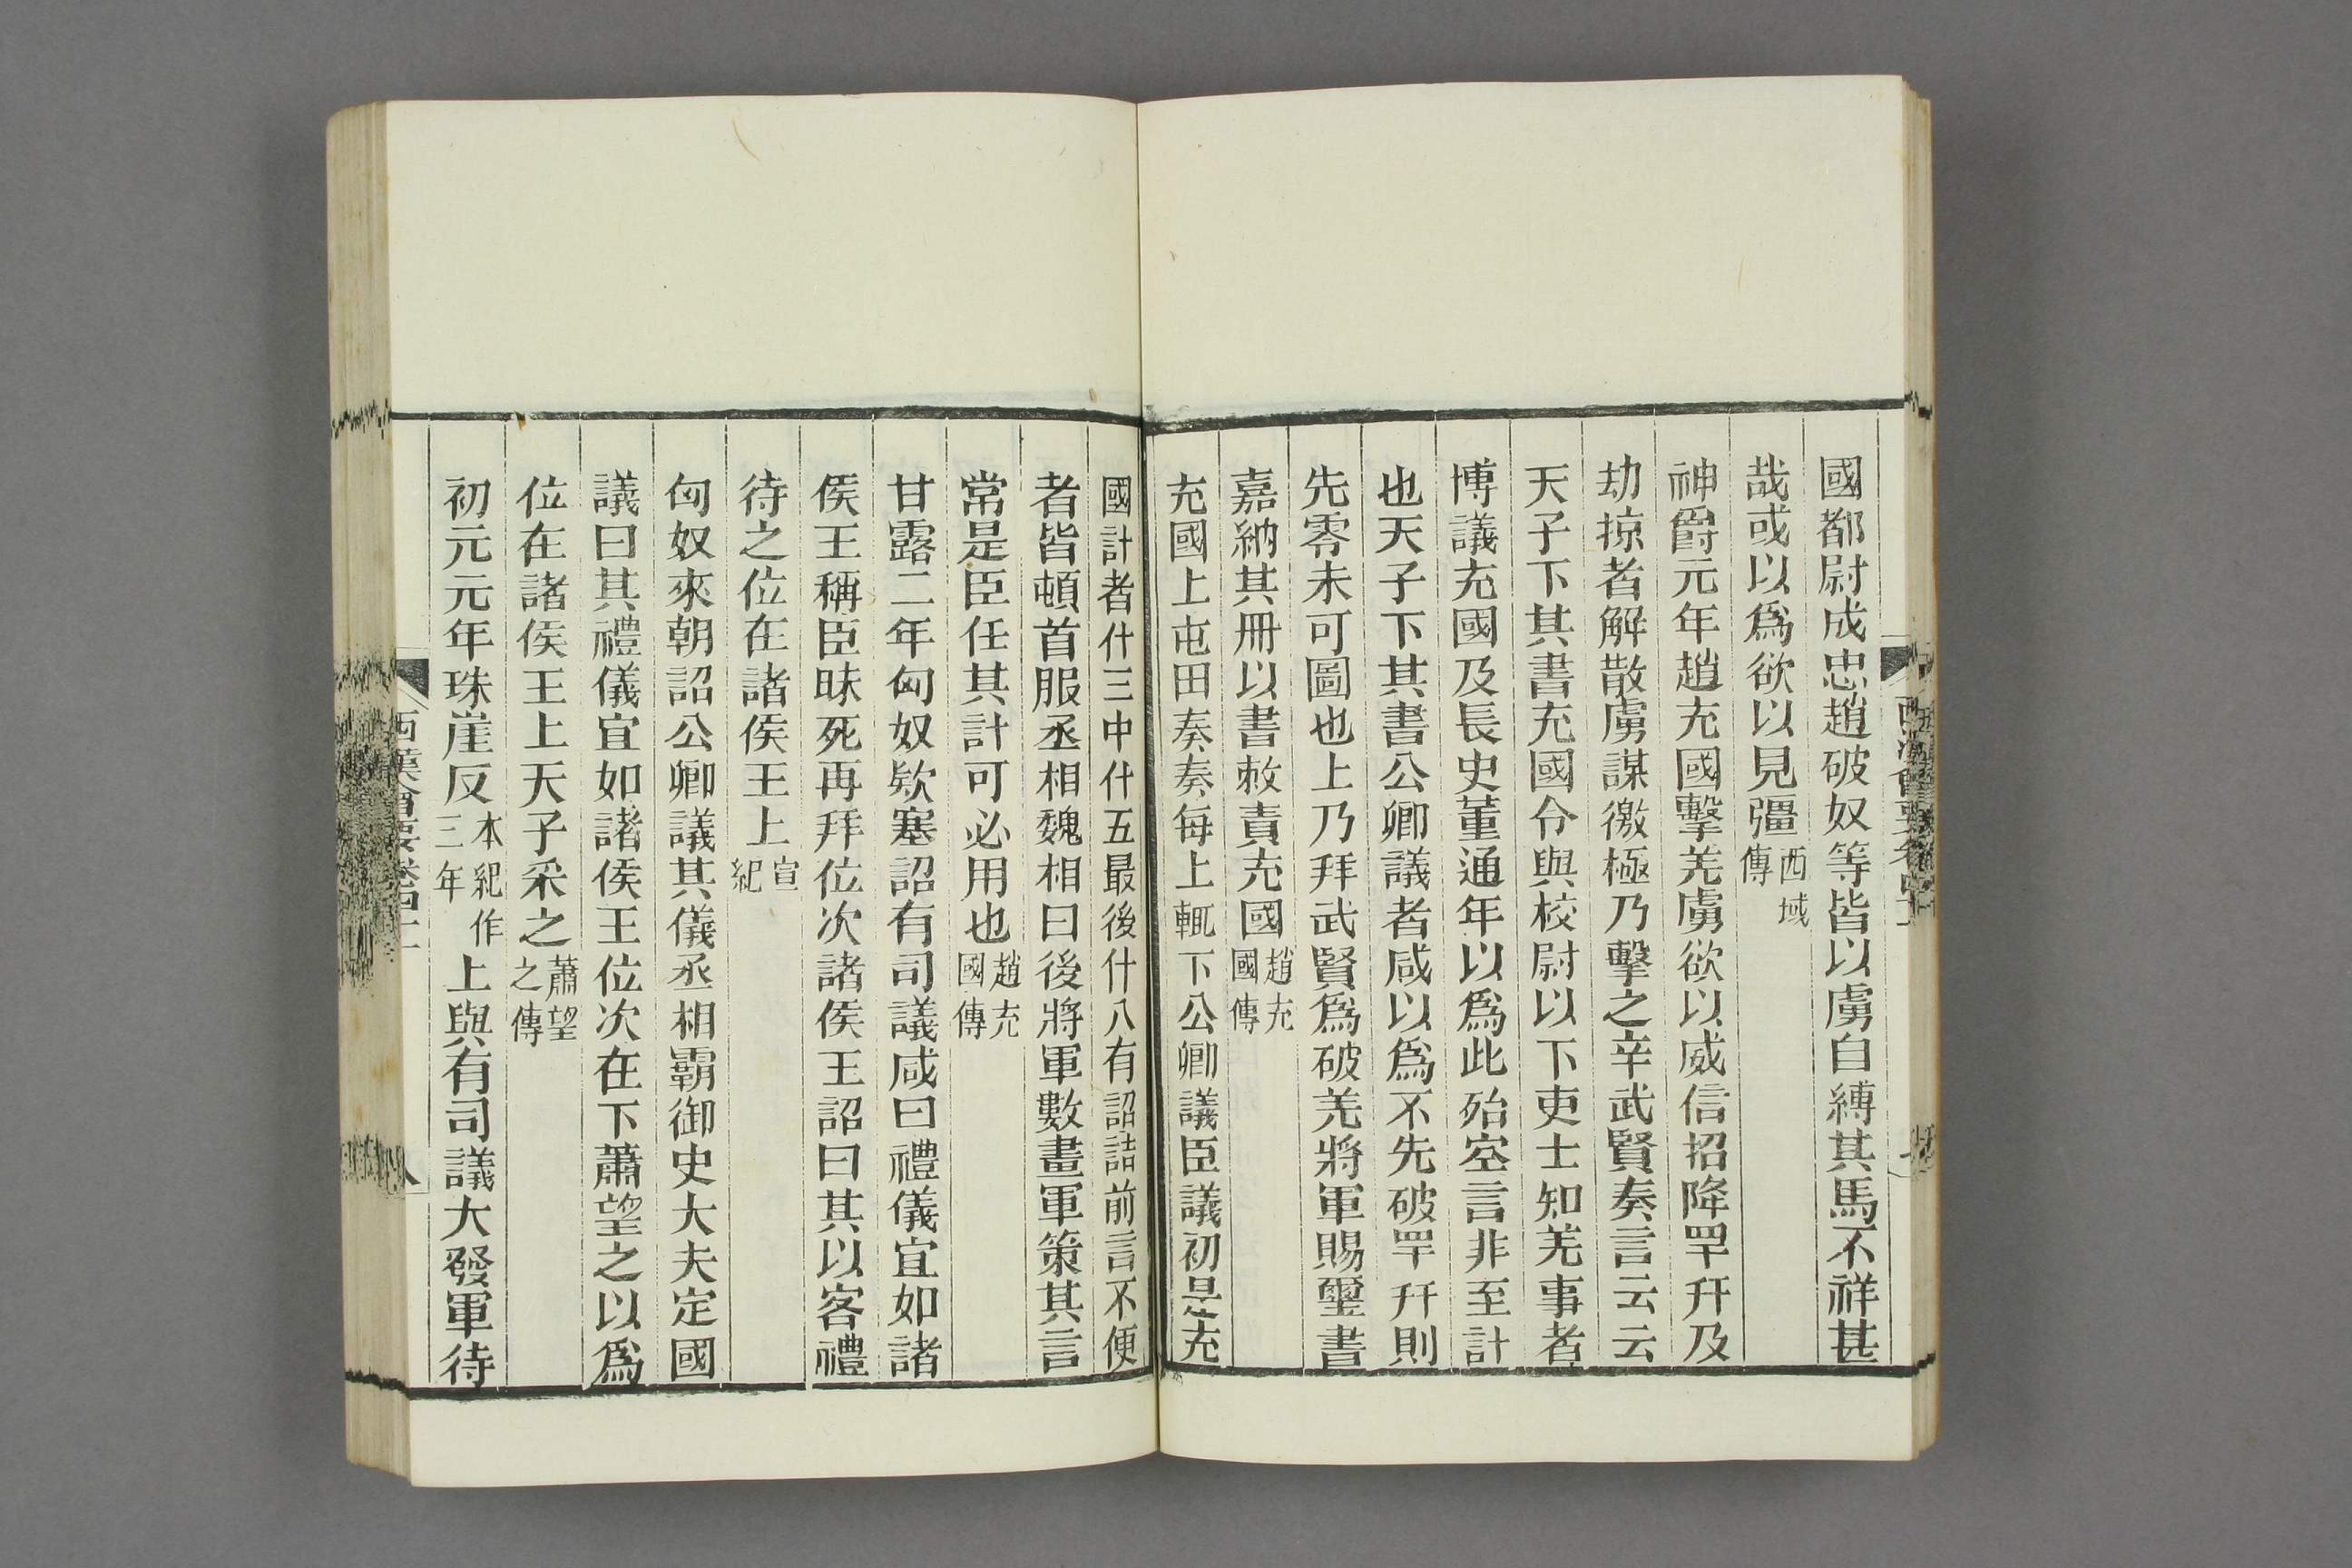 國都尉成忠趙破奴等皆以虜自縛其馬不祥甚
哉或以爲欲以見彊西域傳
神爵元年趙充國擊羌虜欲以威信招降䍐幵及
劫掠者解散虜謀徼極乃擊之辛武賢奏言云云
天子下其書充國令與校尉以下吏士知羌事者
博議充國及長史董通年以爲此殆空言非至計
也天子下其書公卿議者咸以爲不先破䍐幵則
先零未可圖也上乃拜武賢爲破羌將軍賜璽書
嘉納其冊以書敕責充國趙充國傳
充國上屯田奏奏每上輒下公卿議臣議初是充
國計者什三中什五最後什八有詔詰前言不便
者皆頓首服丞相魏相曰後將軍數畫軍策其言
常是臣任其計可必用也趙充國傳
甘露二年匈奴欵塞詔有司議咸曰禮儀宜如諸
侯王稱臣昧死再拜位次諸侯王詔曰其以客禮
待之位在諸侯王上宣紀
匈奴來朝詔公卿議其儀丞相霸御史大夫定國
議曰其禮儀宜如諸侯王位次在下蕭望之以爲
位在諸侯王上天子采之蕭望之傳
初元元年珠崖反本紀作三年上與有司議大發軍待
西漢會要卷四十一
八